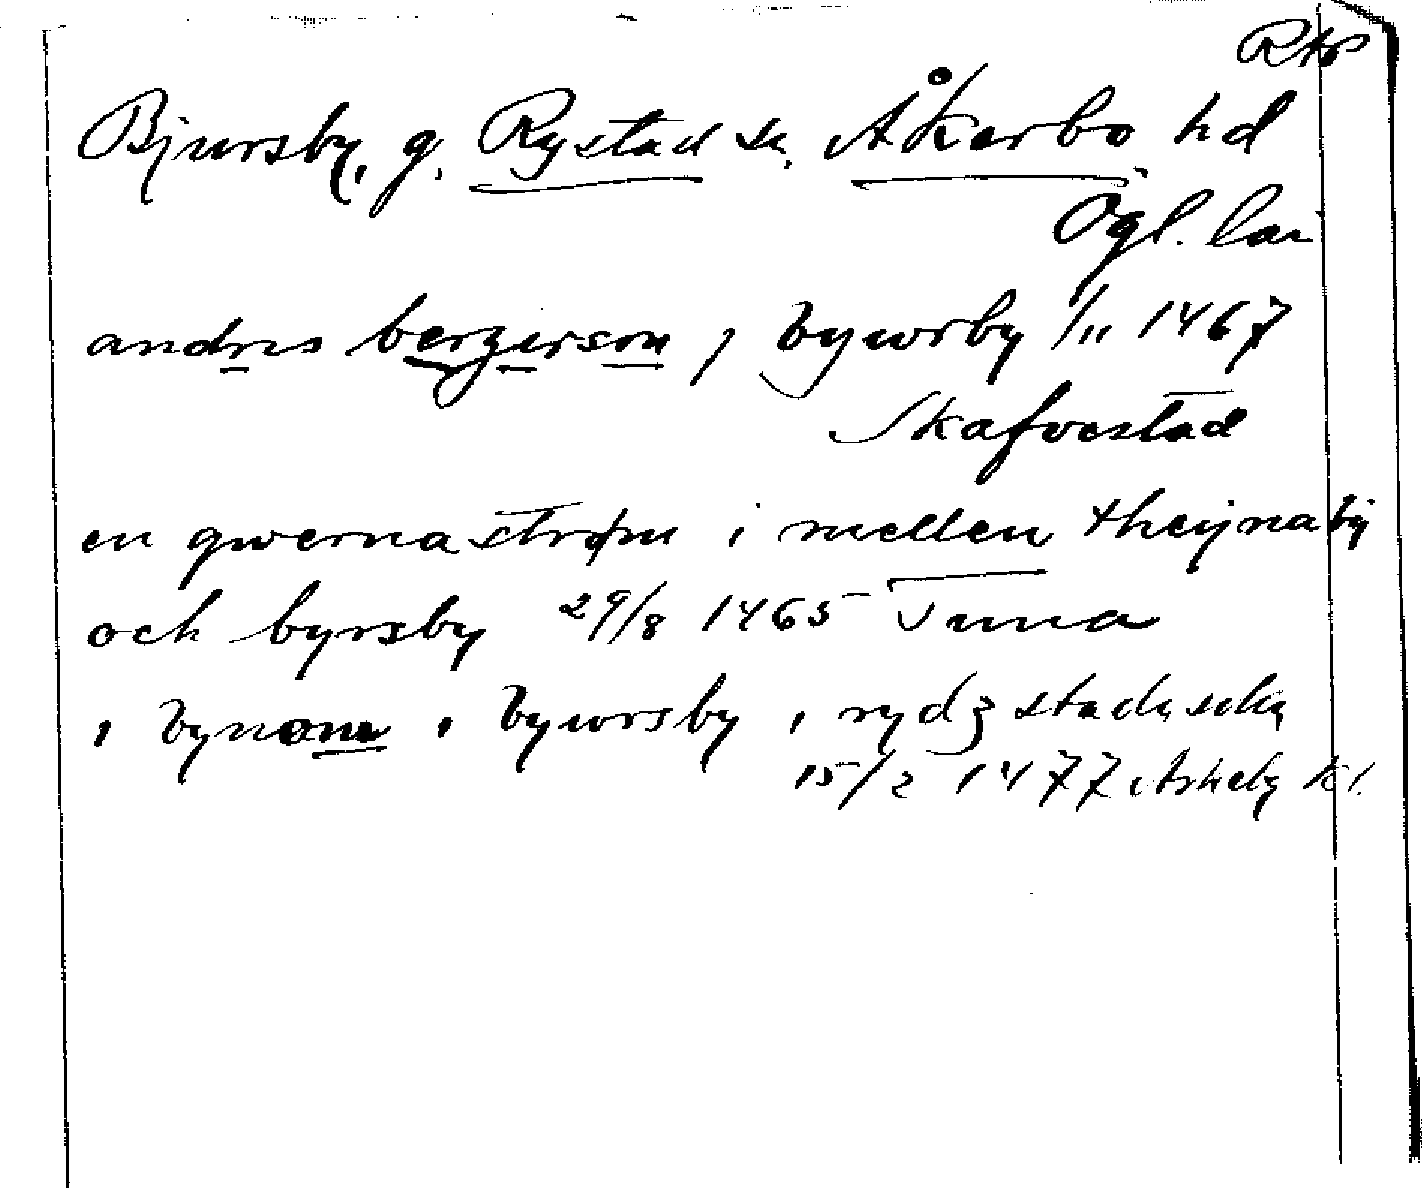 RAP
Bjursby, g. Rystad sn. Åkerbo hd
Ögl. län
andres bergerson j bywrby 1/11 1467
Skafvestad
en qwerna strøm i mellen theynaby
och byrsby 29/8 1465 Tuna
i bynom i bywrsby i rydzstada sokn
15/2 1477 Askeby kl.